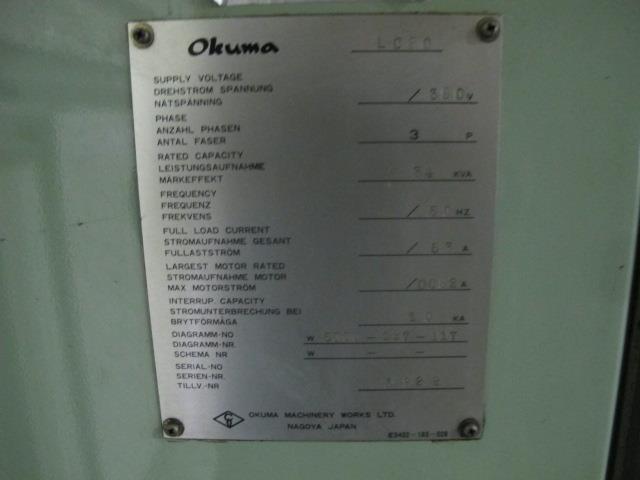 Okuma
SUPPLY VOLTAGE
DREHSTROM SPANNUNG
NÄTSPÄNNING
/380V
PHASE
ANZAHL PHASEN
ANTAL FASER
3 P
RATED CAPACITY
LEISTUNGSAUFNAHME
MÄRKEFFEKT
34 KVA
FREQUENCY
FREQUENZ
FREKVENS
/50HZ
FULL LOAD CURRENT
STROMAUFNAHME GESANT
FULLASTSTRÖM
A
LARGEST MOTOR RATED
STROMAUFNAHME MOTOR
MAX MOTORSTRÖM
A
INTERRUP. CAPACITY
STROMUNTERBRECHUNG BEI
BRYTFÖRMÅGA
KA
DIAGRAM-NO
DIAGRAMM-NR.
W
SCHEMA NR
W — —
SERIAL-NO
SERIEN-NR.
TILLV.-NR
OKUMA MACHINERY WORKS LTD.
NAGOYA JAPAN